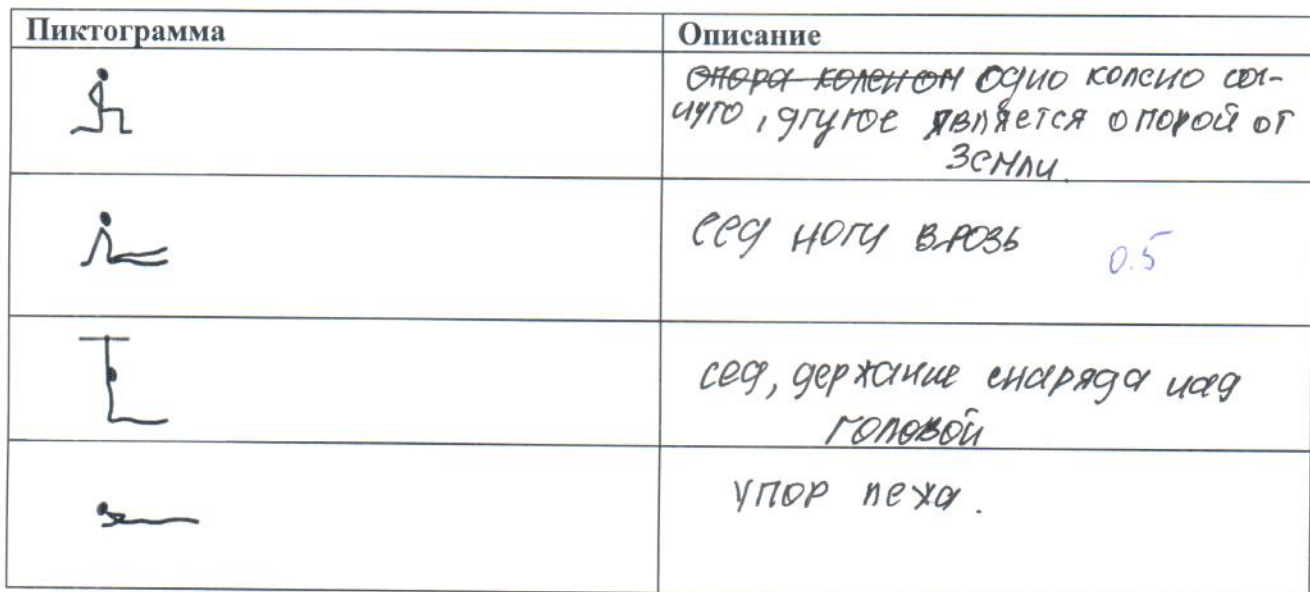 Пиктограмма
Описание
опора коленом одно колено сог-
нуто, другое является опорой от
земли.
сед ноги врозь
0.5
сед, держание снаряда над
головой
упор лежа.